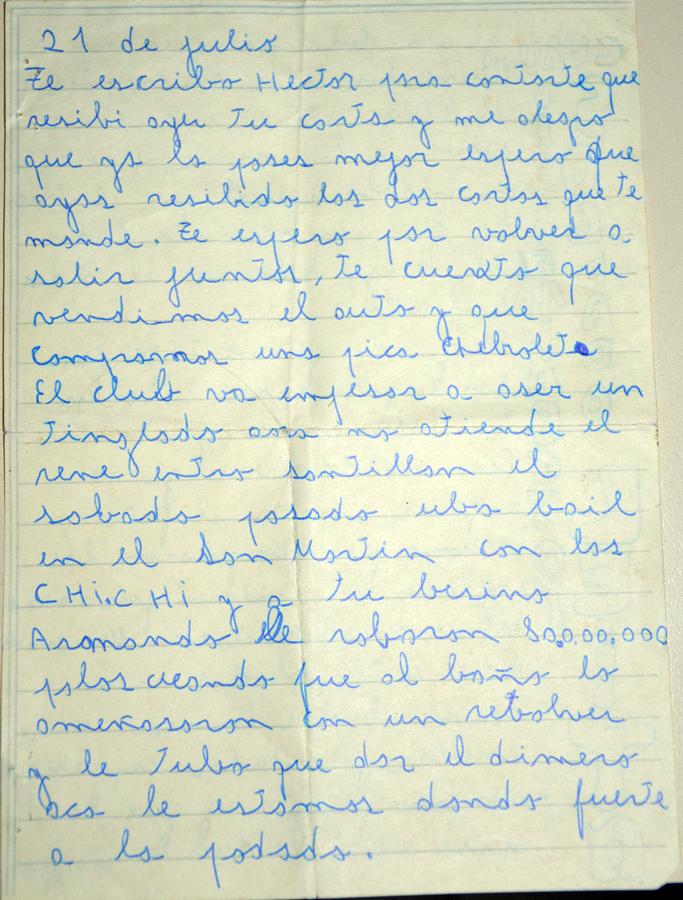 21 de julio
Te escribo Hector para contarte que
resibi ayer tu carta y me alegro
que ya la pases mejor espero que
ayas resibido las dos cartas que te
mande. Te espero par volver a
salir juntos, te cuento que
vendimos el auto y que
compramos una pica chebrolete
El club va empesar a aser un
tinglado aora no atiende el
rene entro santillan el
sabado pasado ubo bail
en el San Martin con los
CHi.CHi y a tu besino
Aramando le robaron 80.000.000
palos cuando fue al baño lo
amenasaron con un rebolver
y le tubo que dar el dinero
aca le estamos dando fuerte
a la podada.